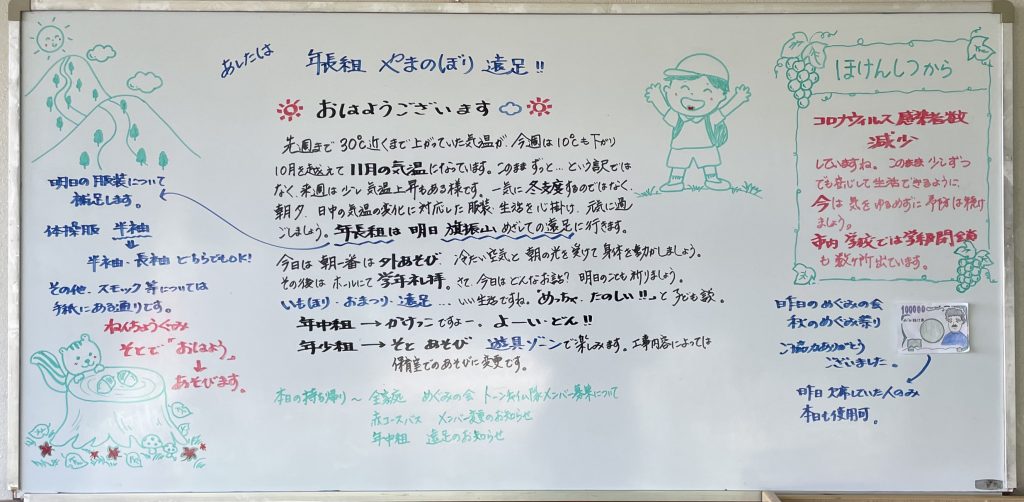 あしたは 年長組 やまのぼり 遠足!!
おはようございます
先週まで30℃近くまで上がっていた気温が、今週は10℃も下がり
10月を越えて11月の気温になっています。このままずっと…という訳では
なく来週は少し気温上昇もある様です。一気に冬支度するのではなく、
朝夕、日中の気温の変化に対応した服装・生活を心掛け、元気に過
ごしましょう。年長組は明日 旗振山めざしての遠足に行きます。
今日は朝一番は外あそび 冷たい空気と朝の光を受けて身体を動かしましょう。
その後はホールにて学年礼拝。さて、今日はどんなお話?明日のことも祈りましょう。
いもほり・おまつり・遠足…いい生活ですね。めっちゃ、たのしい!!と子ども談。
年中組→かけっこですよー、よーい・どん!!
年少組→そと あそび 遊具ゾーンで楽しみます。工事内容によっては
保育室でのあそびに変更です。
本日の持ち帰り〜 全家庭 めぐみの会 トーンチャイム隊メンバー募集について
赤コースバス メンバー変更のお知らせ
年中組 遠足のお知らせ
明日の服装について
補足します。
体操服 半袖
↓
半袖・長袖どちらでもOK!
その他、スモック等については
手紙にある通りです。
ねんちょうぐみ
そとで"おはよう"
→あそびます。
ほけんしつから
コロナウィルス感染者数
減少
していますね。このまま少しずつ
でも安心して生活できるように、
今は気をゆるめずに予防は続け
ましょう。
市内 学校では学級閉鎖
も数ヶ所出ています。
昨日のめぐみの会
秋のめぐみ祭り
ご協力ありがとう
ございました。
100000
昨日欠席していた人のみ
本日も使用可。